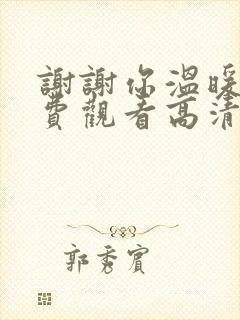 謝謝你溫暖
費觀看高清
郭秀賓